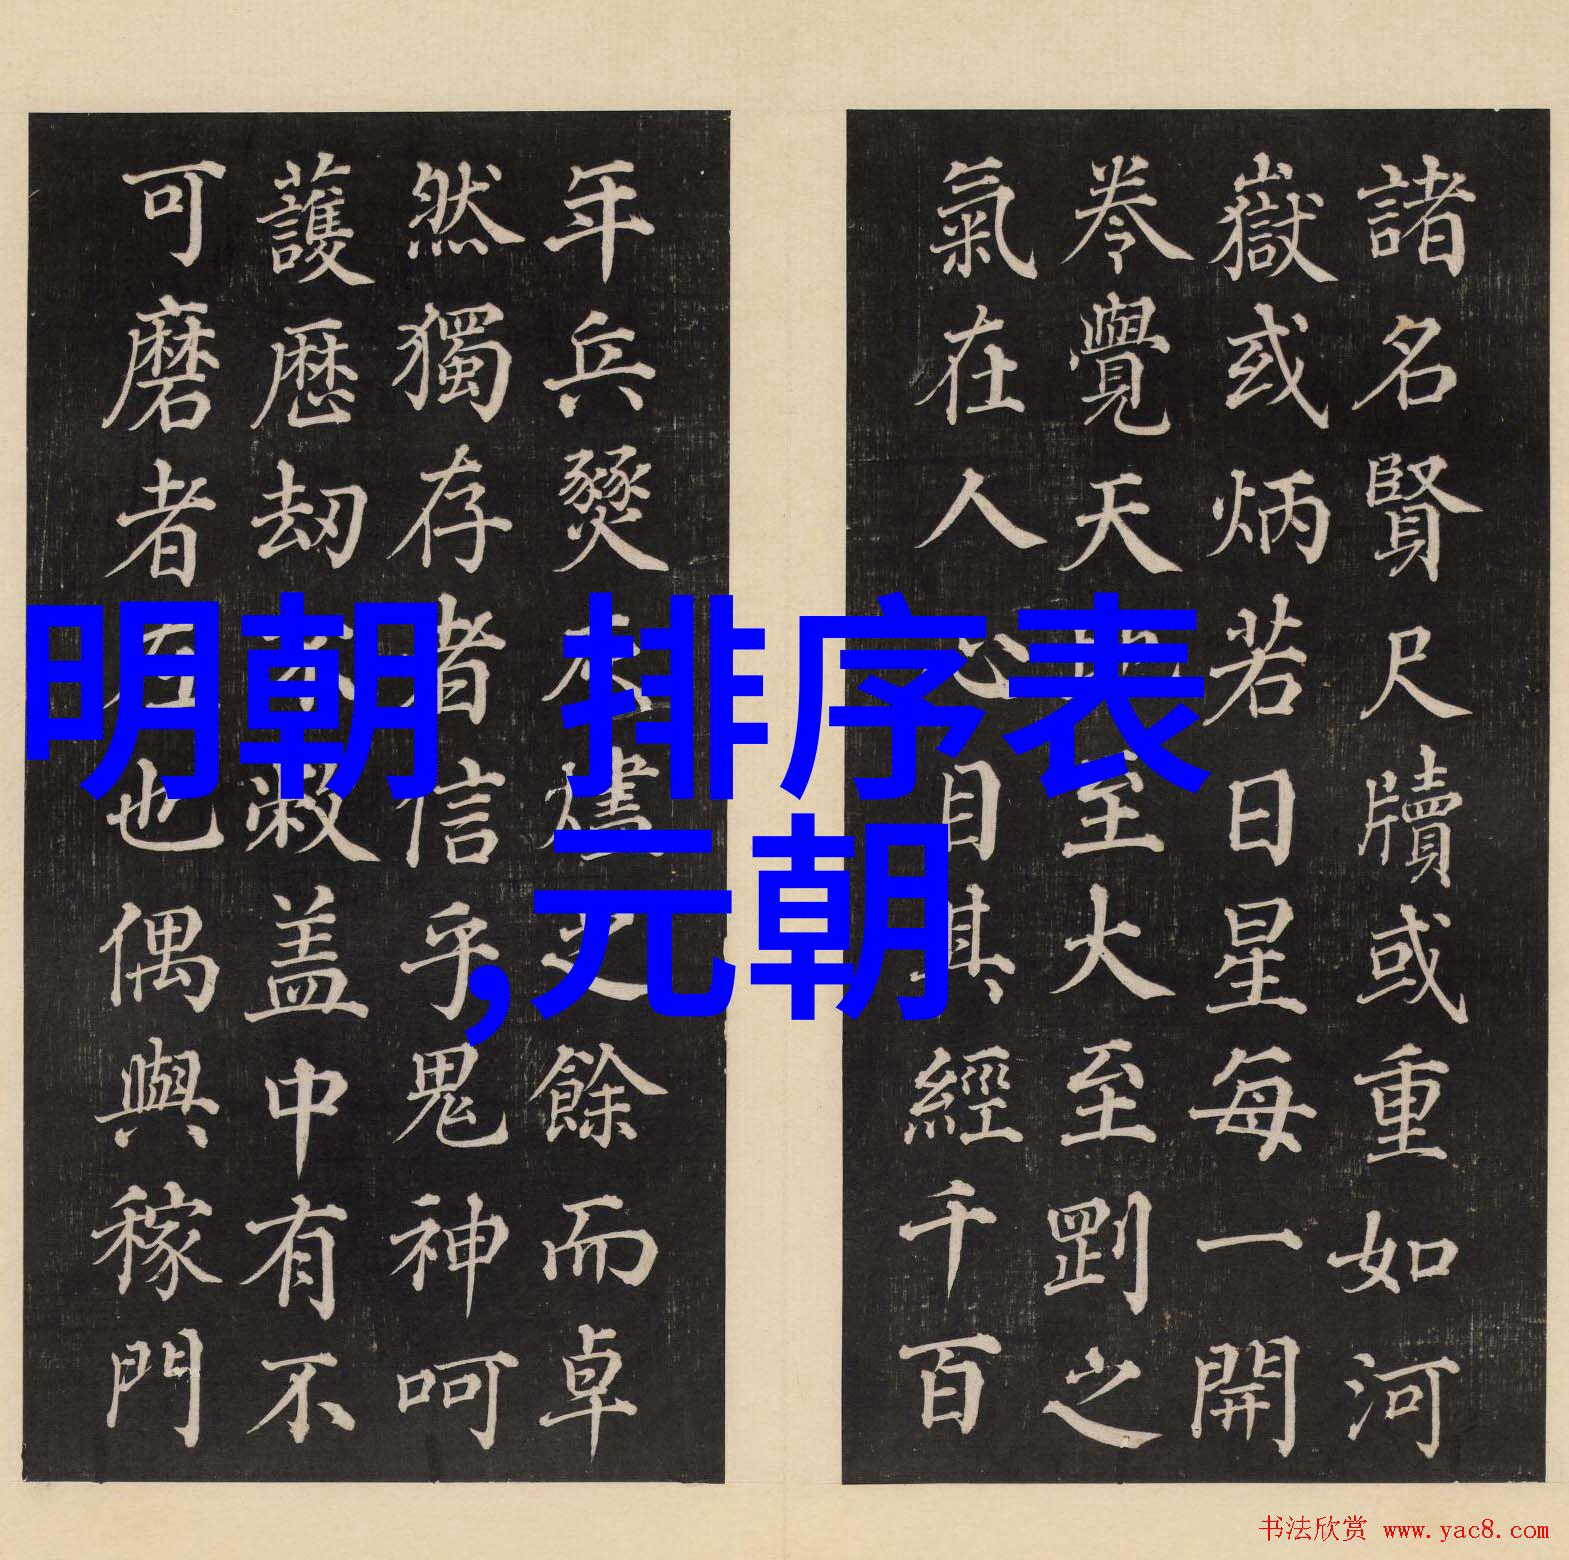 諸名賢尺牘或重如河
嶽或炳若日星每一開
卷覺天地至大至剛之
氣在人心目其經千百
年兵燹燼之餘而卓
然獨存者信乎鬼神呵
護歷劫不敝盖中有不
可磨者在也偶與稼門
明朝 排序表
,元朝
书法欣赏 www.yac8.com